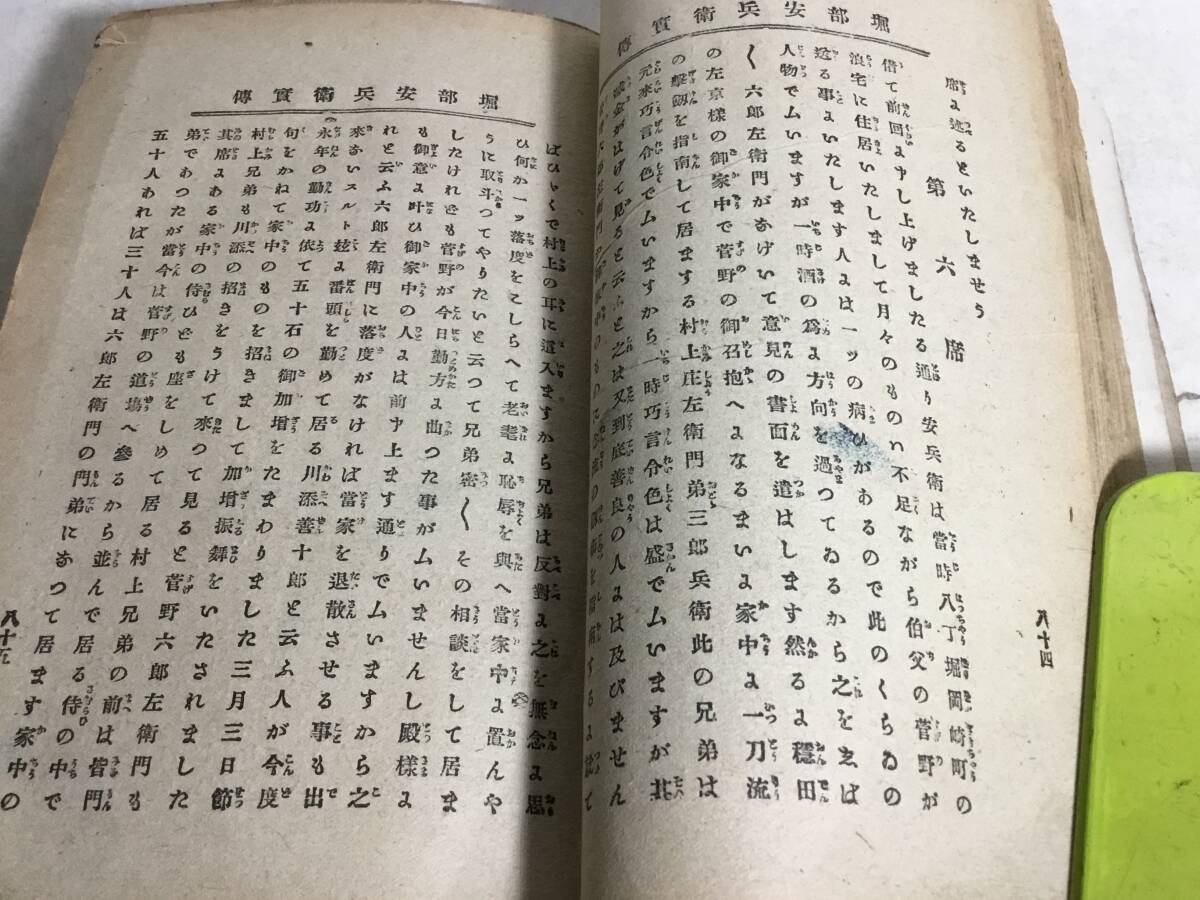 堀部安兵衛實傳
八十四
席よ述るといたしませう
第六席
偖て前回よ申し上げましたる通り安兵衛は當時八丁堀岡崎町の
浪宅に住居いたしまして月々のものい不足ながら伯父の菅野が
送る事よいたします人よは一ッの病ひがあるので此のくらゐの
人物でムいますが一時酒の爲よ方向を過つてゐるから之をゑば
〱六郎左衛門があげいて意見の書面を遣はします然るよ穩田
の左京様の御家中で菅野の御召抱へよなるまいよ家中よ一刀流
の擊劔を指南して居まする村上庄左衛門弟三郎兵衛此の兄弟は
元來巧言令色でムいますから一時巧言令色は盛でムいますが其
金がはげて見ると云ふと之は又到底善良の人よは及びません
堀部安兵衛實傳
ばひやくで村上の耳に這入ますから兄弟は反對よ之を無念よ思
ひ何か一ッ落度をこしらへて老耄よ恥辱を與へ當家中よ置んや
うに取斗つてやりたいと云つて兄弟密〱その相談をして居ま
したけれども菅野が今日勤方よ曲つた事がムいませんし殿様よ
も御意よ叶ひ御家中の人よは前申上ます通りでムいますから之
れと云ふ六郎左衛門に落度がなければ當家を退散させる事も出
來ないスルト玆よ番頭を勤めて居る川添善十郎と云ふ人が今度
永年の勤功よ依て五十石の御加增をたまわりました三月三日節
句をかねて家中のものを招きまして加增振舞をいたされました
村上兄弟も川添の招きをうけて來つて見ると菅野六郎左衛門も
其席よある家中の侍ひども座をしめて居る村上兄弟の前は皆門
弟であつたが當今は菅野の道塲へ參るから並んで居る侍の中で
五十人あれば三十人は六郎左衛門の門弟になつて居ます家中の
八十五